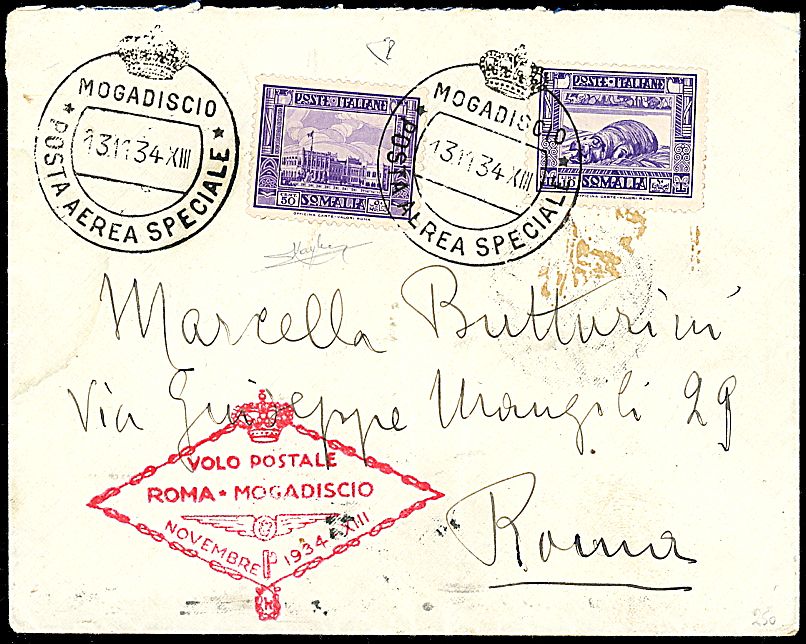 MOGADISCIO
13.11.34.XIII
* POSTA AEREA SPECIALE *
POSTE·ITALIANE
50 SOMALIA
OFFICINA CARTE-VALORI ROMA
MOGADISCIO
13.11.34.XIII
POSTA AEREA SPECIALE *
POSTE·ITALIANE
SOMALIA
OFFICINA CARTE-VALORI ROMA
Marcella Butturini
Via Giuseppe Mangili 29
Roma
VOLO POSTALE
ROMA • MOGADISCIO
NOVEMBRE 1934 XIII
250